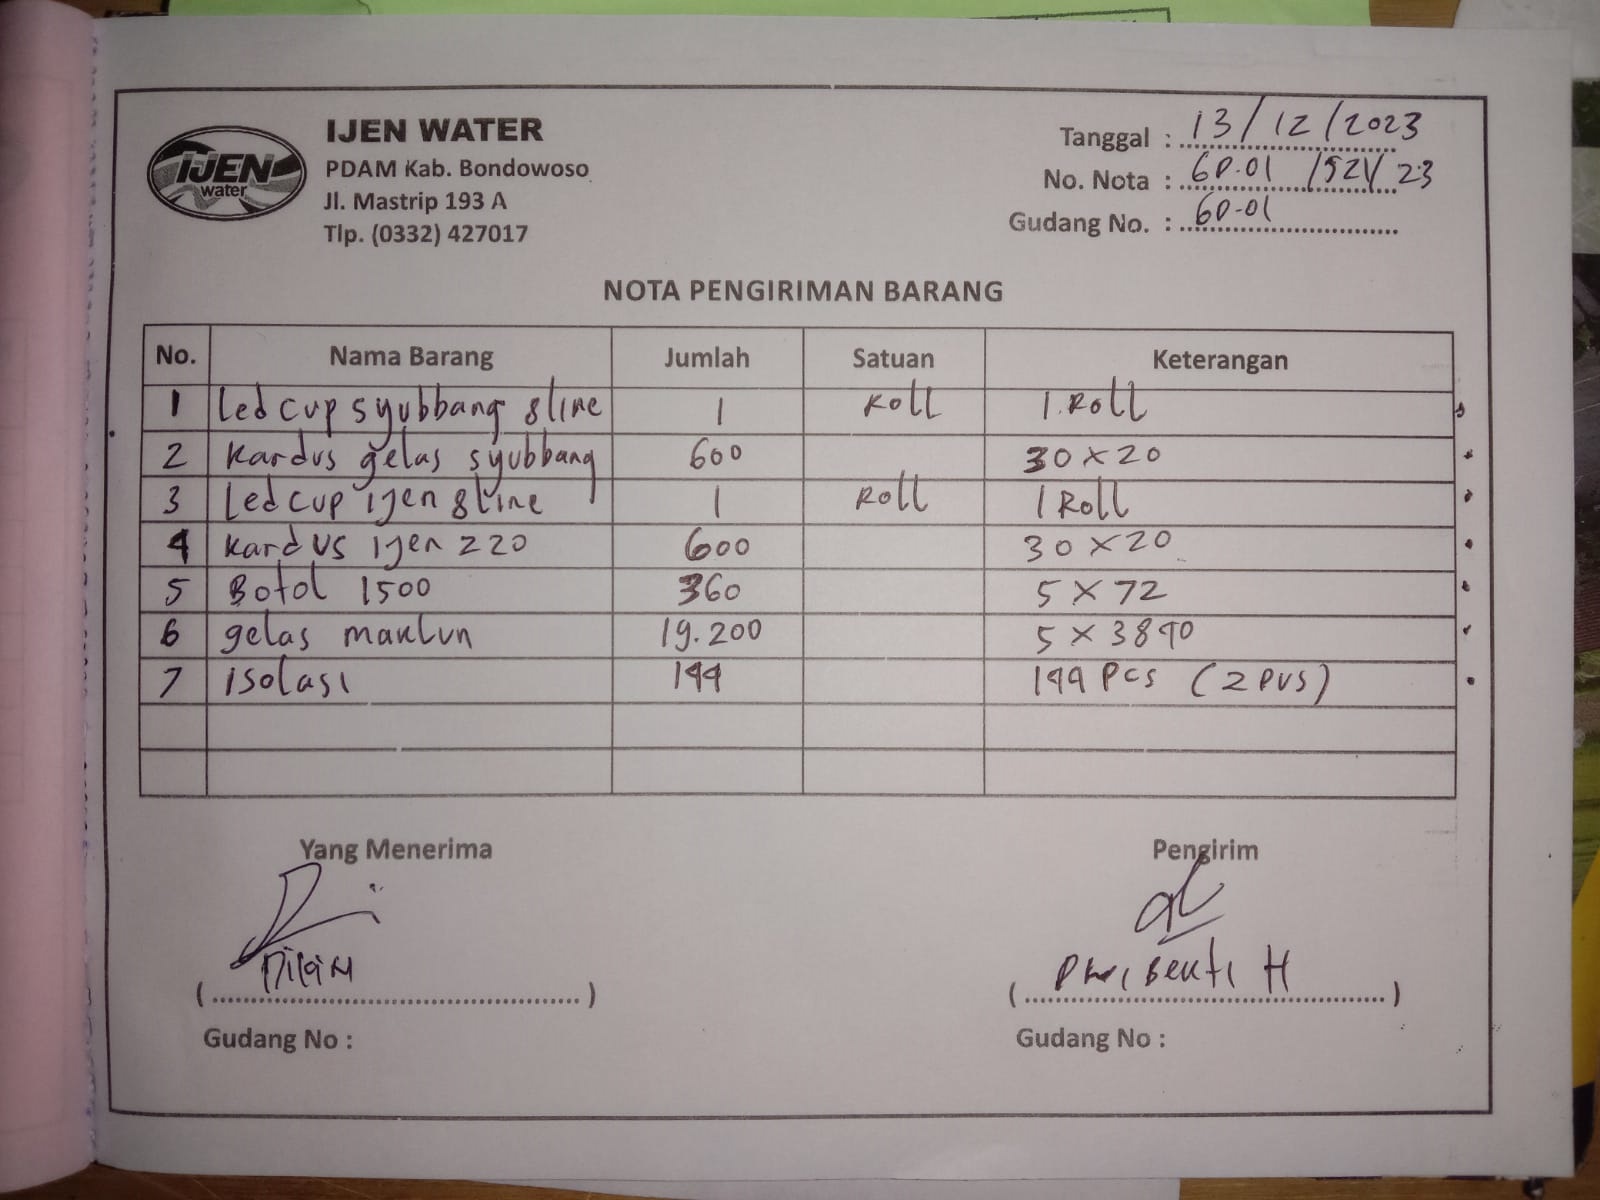 IJEN
water
IJEN WATER
PDAM Kab. Bondowoso
Jl. Mastrip 193 A
Tlp. (0332) 427017
Tanggal : 13/12/2023
No. Nota : GD.01 /521/ 23
Gudang No. : GD-01
NOTA PENGIRIMAN BARANG
No. Nama Barang Jumlah Satuan Keterangan
1 Led cup syubbang 8 line 1 Roll 1 Roll
2 Kardus gelas syubbang 600 30 x 20
3 Led cup ijen 8 line 1 Roll 1 Roll
4 Kardus ijen 220 600 30 x 20
5 Botol 1500 360 5 x 72
6 gelas maklun 19.200 5 x 3840
7 isolasi 144 144 Pcs (2 pus)
Yang Menerima Pengirim
( ) ( H )
Gudang No : Gudang No :